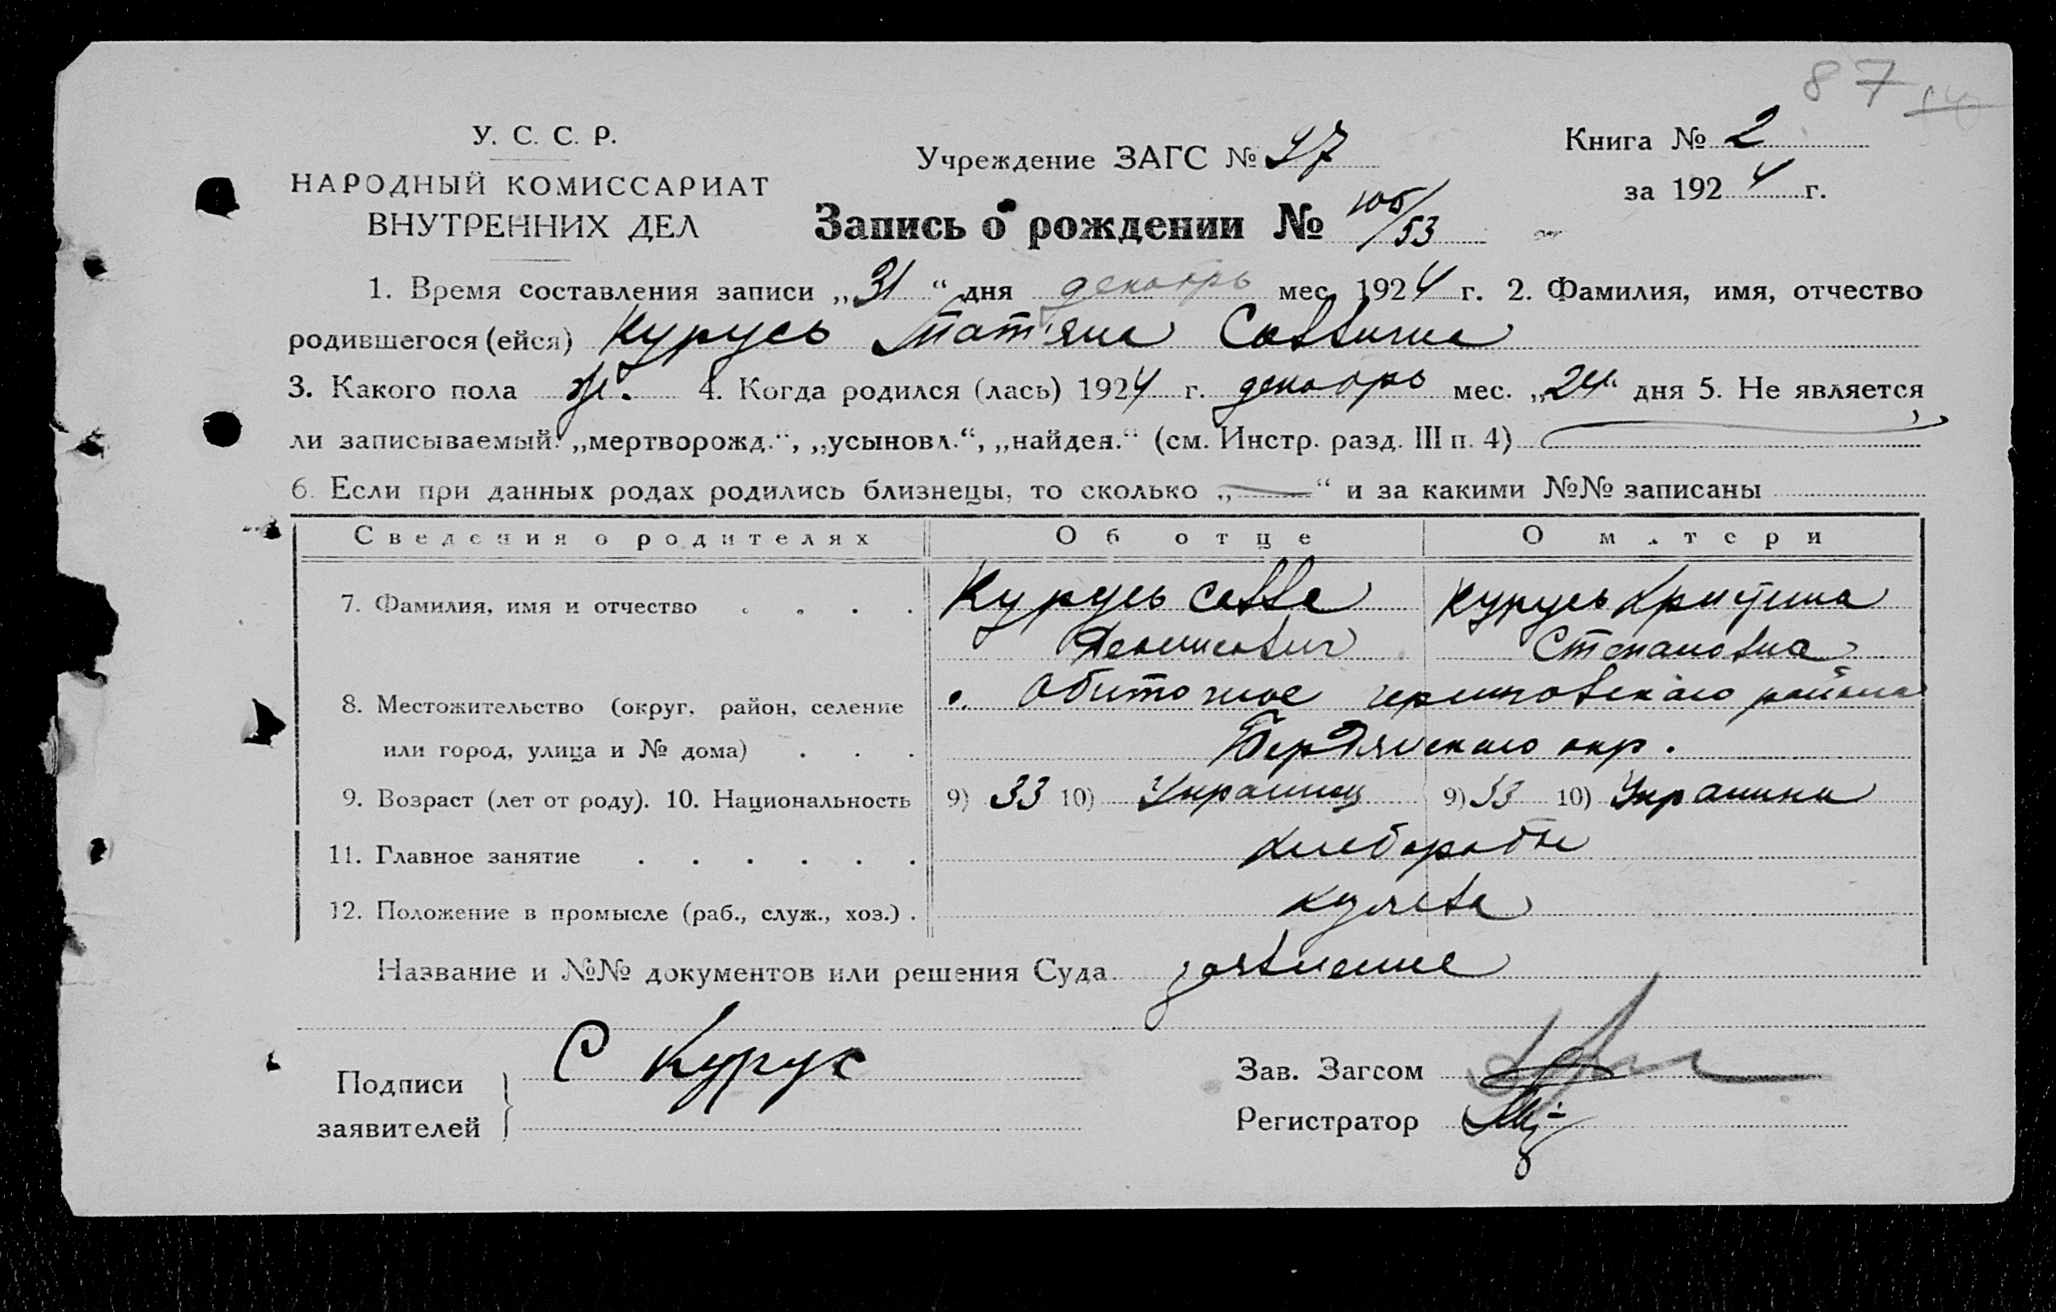 87
У. С. С. Р.
НАРОДНЫЙ КОМИССАРИАТ
ВНУТРЕННИХ ДЕЛ
Учреждение ЗАГС №
Книга № 2
за 1924 г.
Запись о рождении № 106/53
1. Время составления записи „31“ дня декабрь мес. 1924 г. 2. Фамилия, имя, отчество
родившегося (ейся) Курусь Тат'яна Саввична
3. Какого пола ж. 4. Когда родился (лась) 1924 г. декабрь мес. „24“ дня 5. Не является
ли записываемый: „мертворожд.“, „усыновл.“, „найден.“ (см. Инстр. разд. III п. 4)
6. Если при данных родах родились близнецы, то сколько „—“ и за какими №№ записаны
Сведения о родителях Об отце О матери
7. Фамилия, имя и отчество Курусь Савва Курусь Кристина
Денисович Степановна
8. Местожительство (округ, район, селение Обиточное района
или город, улица и № дома) Бердянского окр.
9. Возраст (лет от роду). 10. Национальность 9) 33 10) Украинец 9) 33 10) Украинка
11. Главное занятие хлеборобы
12. Положение в промысле (раб., служ., хоз.)
Название и №№ документов или решения Суда заявление
Подписи
заявителей
С Курус
Зав. Загсом
Регистратор